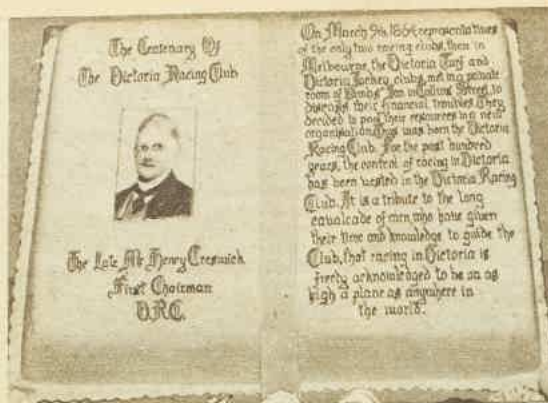 The Centenary Of
The Victoria Racing Club
The Late Mr Henry Creswick
First Chairman
V.R.C.
On March 9th 1864 representatives
of the only two racing clubs, then in
Melbourne, the Victoria Turf and
Victoria Jockey clubs, met in a private
room of Inn in Collins Street, to
discuss their financial troubles. They
decided to pool their resources in a new
organisation. Thus was born the Victoria
Racing Club. For the past hundred
years, the control of racing in Victoria
has been vested in the Victoria Racing
Club. It is a tribute to the long
cavalcade of men who have given
their time and knowledge to guide the
Club, that racing in Victoria is
freely acknowledged to be on as
high a plane as anywhere in
the world.